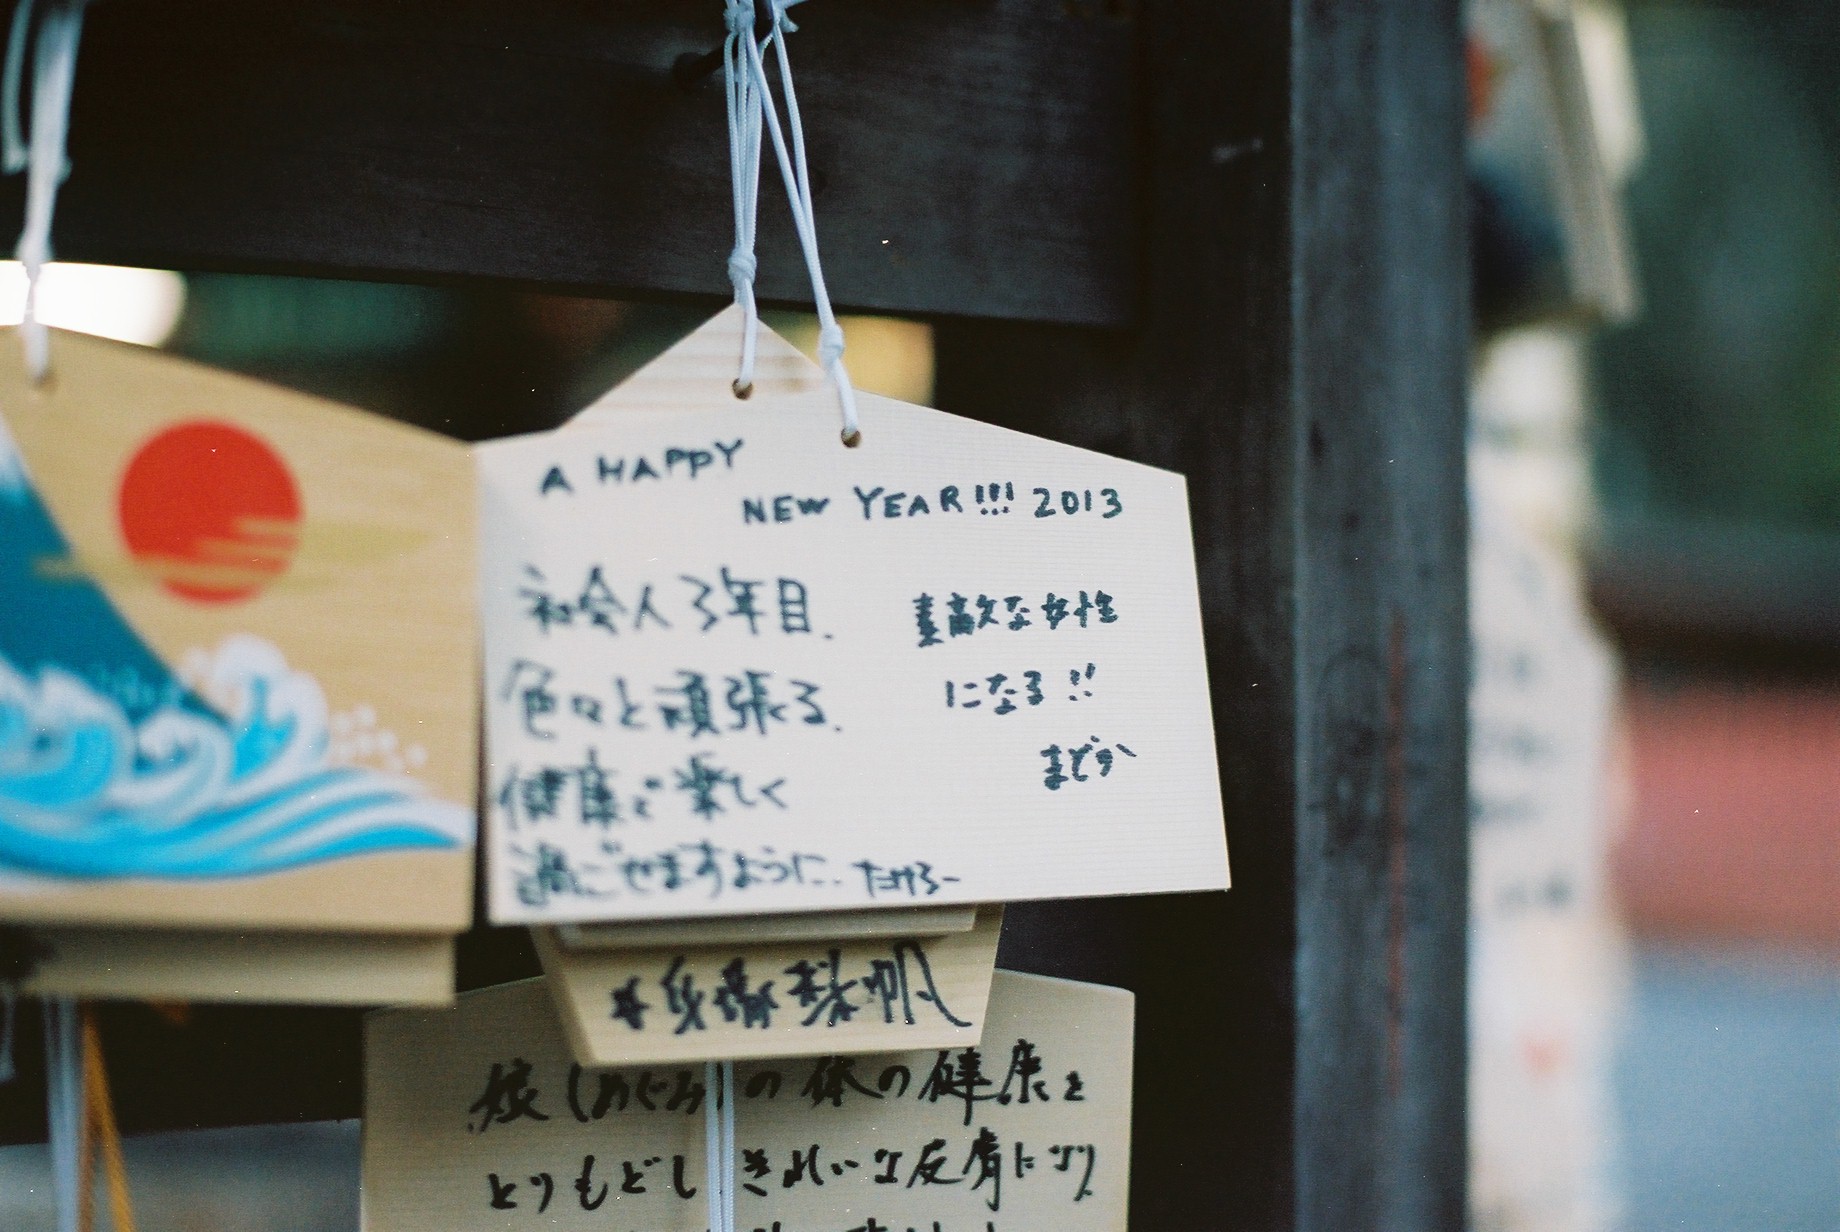 A HAPPY
NEW YEAR!!! 2013
社会人3年目.
色々と頑張る.
健康で楽しく
過ごせますように.. たけろー
素敵な女性
になる!!
まどか
娘(めぐみ)の体の健康を
とりもどし きれいな皮膚になり